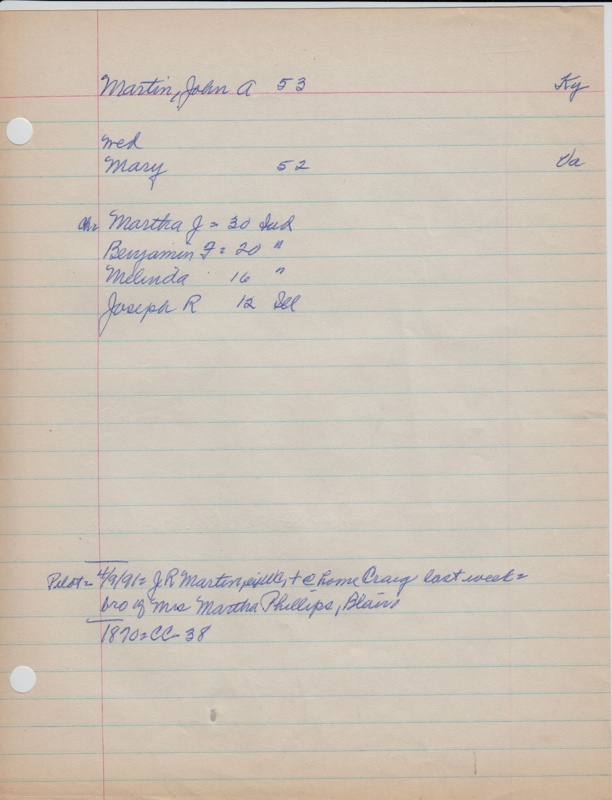 Martin, John A 53 Ky
wed
Mary 52 Va
ch= Martha J = 30 Ind
Benjamin F = 20 "
Melinda 16 "
Joseph R 12 Ill
Pilot= 4/9/91= J.R Martin, + @ home Craig last week=
bro of Mrs Martha Phillips, Blair
1870=CC-38